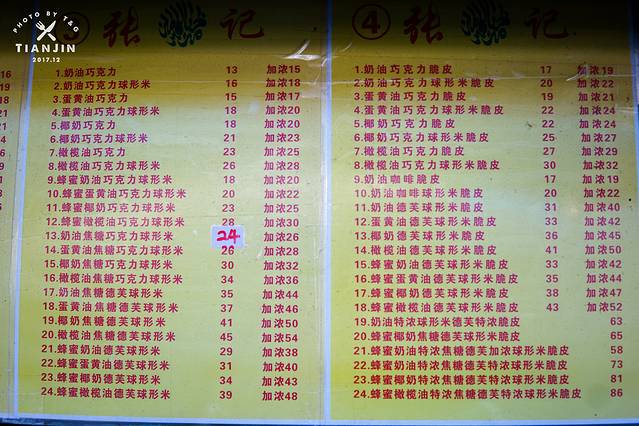 PHOTO BY T&G
TIANJIN
2017.12
③ 张 记
1.奶油巧克力 13 加浓15
2.奶油巧克力球形米 16 加浓18
3.蛋黄油巧克力 15 加浓17
4.蛋黄油巧克力球形米 18 加浓20
5.椰奶巧克力 18 加浓20
6.椰奶巧克力球形米 21 加浓23
7.橄榄油巧克力 23 加浓25
8.橄榄油巧克力球形米 26 加浓28
9.蜂蜜奶油巧克力球形米 18 加浓20
10.蜂蜜蛋黄油巧克力球形米 20 加浓22
11.蜂蜜椰奶巧克力球形米 23 加浓25
12.蜂蜜橄榄油巧克力球形米 28 加浓30
13.奶油焦糖巧克力球形米 24 加浓26
14.蛋黄油焦糖巧克力球形米 26 加浓28
15.椰奶焦糖巧克力球形米 30 加浓32
16.橄榄油焦糖巧克力球形米 34 加浓36
17.奶油焦糖德芙球形米 35 加浓44
18.蛋黄油焦糖德芙球形米 37 加浓46
19.椰奶焦糖德芙球形米 41 加浓50
20.橄榄油焦糖德芙球形米 45 加浓54
21.蜂蜜奶油德芙球形米 29 加浓38
22.蜂蜜蛋黄油德芙球形米 31 加浓40
23.蜂蜜椰奶德芙球形米 34 加浓43
24.蜂蜜橄榄油德芙球形米 39 加浓48
④ 张 记
1.奶油巧克力脆皮 17 加浓19
2.奶油巧克力球形米脆皮 20 加浓22
3.蛋黄油巧克力脆皮 19 加浓21
4.蛋黄油巧克力球形米脆皮 22 加浓24
5.椰奶巧克力脆皮 22 加浓24
6.椰奶巧克力球形米脆皮 25 加浓27
7.橄榄油巧克力脆皮 27 加浓29
8.橄榄油巧克力球形米脆皮 30 加浓32
9.奶油咖啡脆皮 17 加浓19
10.奶油咖啡球形米脆皮 20 加浓22
11.奶油德芙球形米脆皮 31 加浓40
12.蛋黄油德芙球形米脆皮 33 加浓42
13.椰奶德芙球形米脆皮 36 加浓45
14.橄榄油德芙球形米脆皮 41 加浓50
15.蜂蜜奶油德芙球形米脆皮 33 加浓42
16.蜂蜜蛋黄油德芙球形米脆皮 35 加浓44
17.蜂蜜椰奶德芙球形米脆皮 38 加浓47
18.蜂蜜橄榄油德芙球形米脆皮 43 加浓52
19.奶油特浓球形米德芙特浓脆皮 63
20.蜂蜜奶油特浓球形米德芙特浓球形米脆皮 65
21.蜂蜜奶油特浓焦糖德芙加浓球形米脆皮 58
22.蜂蜜奶油特浓焦糖德芙特浓球形米脆皮 73
23.蜂蜜椰奶特浓焦糖德芙特浓球形米脆皮 81
24.蜂蜜橄榄油特浓焦糖德芙特浓球形米脆皮 86